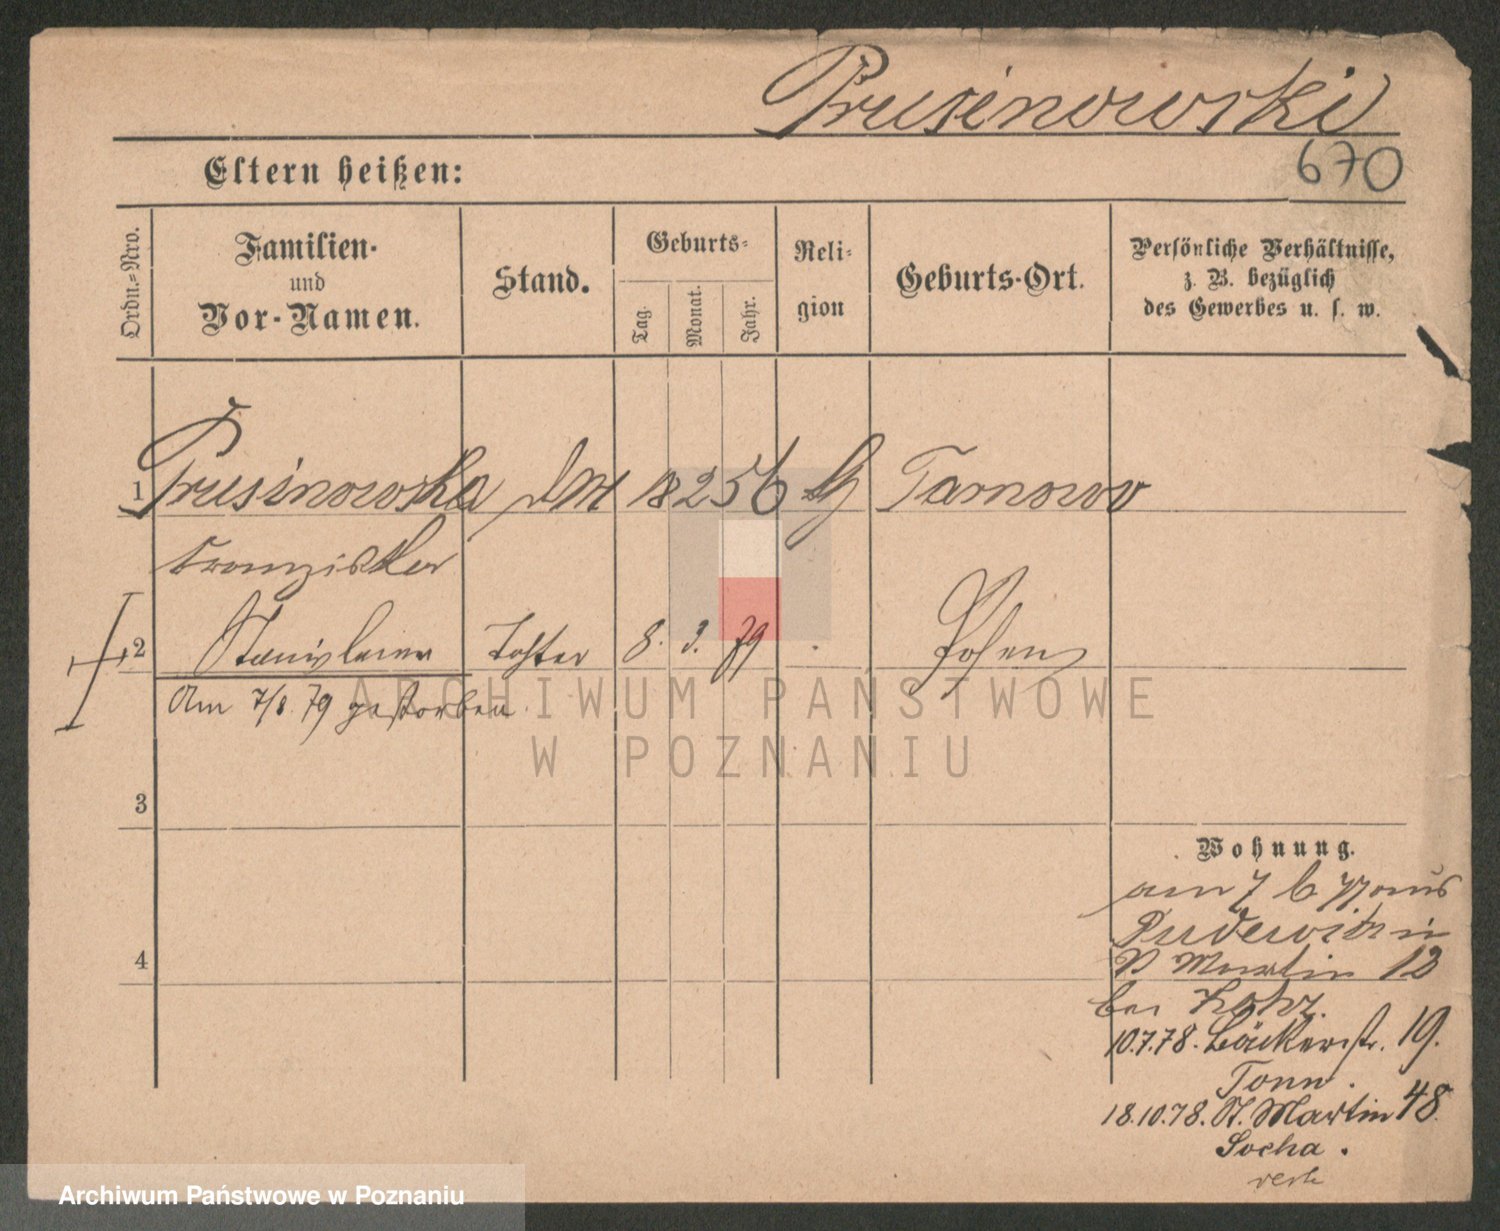 Prusinowski
670
Eltern heißen:
Ordn.-Nro.
Familien-
und
Vor-Namen.
Stand.
Geburts-
Tag.
Monat.
Jahr.
Reli-
gion
Geburts-Ort.
Persönliche Verhältnisse,
z. B. bezüglich
des Gewerbes u. s. w.
1 Prusinowska 18 2 56 Tarnowo
Franziska
2 Stanislawa Tochter 8. 3. 79 Posen
Am 7/8. 79 gestorben.
ARCHIWUM PAŃSTWOWE
W POZNANIU
3
Wohnung.
am 7 aus
Pudewitz in
Martin 13
4
bei
10.7.78. Bäckerstr. 19.
Tonn.
18.10.78. St. Martin 48.
Socha.
Archiwum Państwowe w Poznaniu